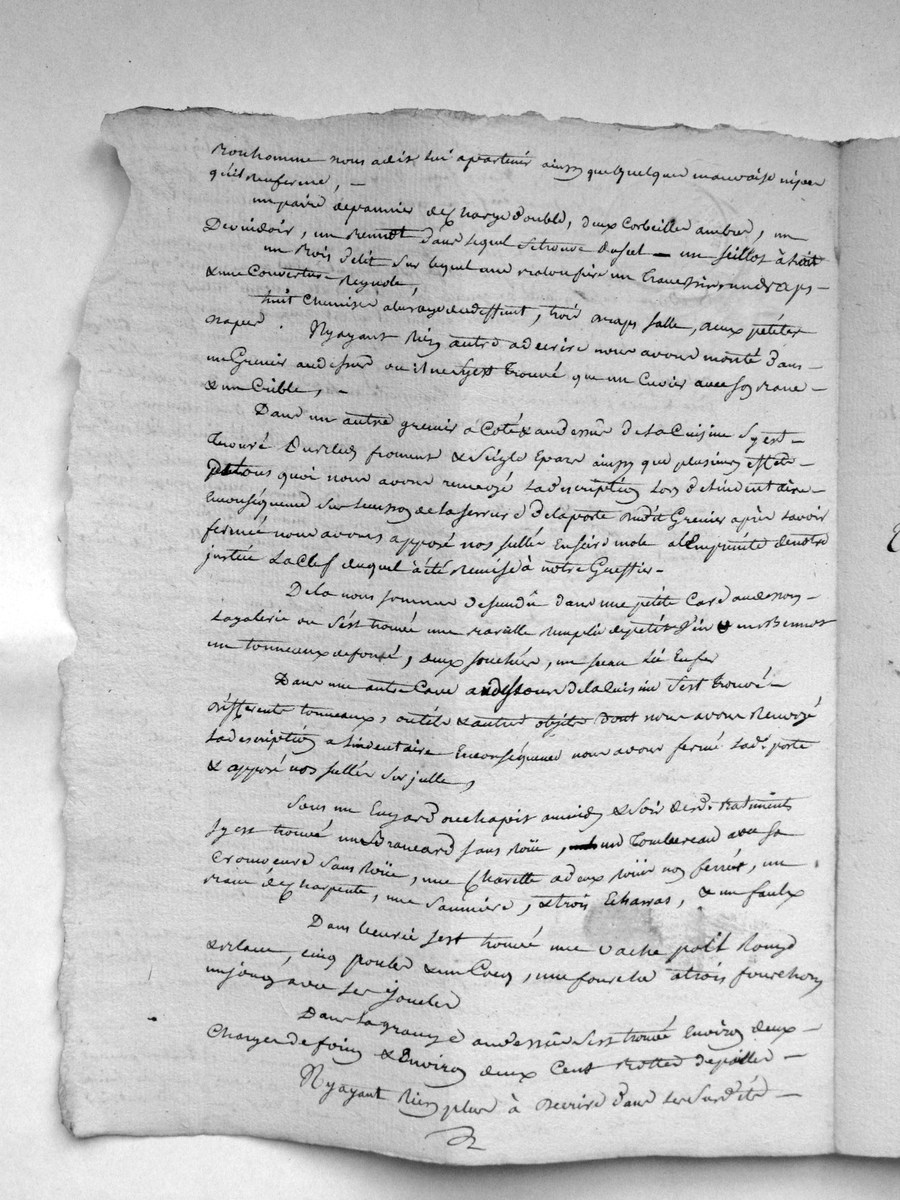 nous a dit lui apartenir ainsy que quelques mauvaise
qu'il Renferme, –
un paire de pannier de Charge double, deux Corbeilles ambres, un
Devindoir, un dans lequel se trouve du sel – un seillot à
un bois de lit sur lequel une un traversin, un draps –
& une Couverture
huit Chemise à l'usage du deffunt, trois draps salle, deux petites
napes. N'yayant Rien autre a decrire nous avons monté dans –
un Grenier audessus ou il ne s'yest trouvé que un Cuvier avec son –
& un Crible, –
Dans un autre grenier a Coté & audessus de la Cuisine s'y est –
trouvé du froment & seigle Epars ainsy que plusieurs effets –
De tous quoi nous avons renvoyé la description lors de l'inventaire –
En conséquence sur de la serrure de la porte dudit Grenier après l'avoir
fermée nous avons apposé nos sellés En cire mole a l'Empreinte de notre
justice La Clef duquel a été Remise à notre Greffier –
De la nous sommes desendu dans une petite Cave
la galerie ou s'est trouvée une remplie de petit vin
un tonneaux defoncé, deux un seau
Dans une autre Cave audessous de la Cuisine s'est trouvé –
différents tonneaux, outils & autres objets dont nous avons Renvoyé
la description a l'inventaire En conséquence nous avons fermé lad. porte
& apposé nos sellés sur jcelle,
Sous un ou chapit a midy & soir desd. Batiments
s'y est trouvé un Brancard sans Roüe, un Tombereau avec sa
sans Roüe, une Charette a deux roües non ferrées, un
banc de Charpente, une & trois Echarras, & un faulx
Dans l'écurie s'est trouvée une vache poil Rouge
& blanc, cinq poules & un Cocq, une fourche a trois fourchons
un joug avec ses
Dans la grange audessus s'est trouvé Environ deux –
Charges de foin & Environ deux Cens Bottes de pailles –
N'yayant Rien plus à Décrire dans les –